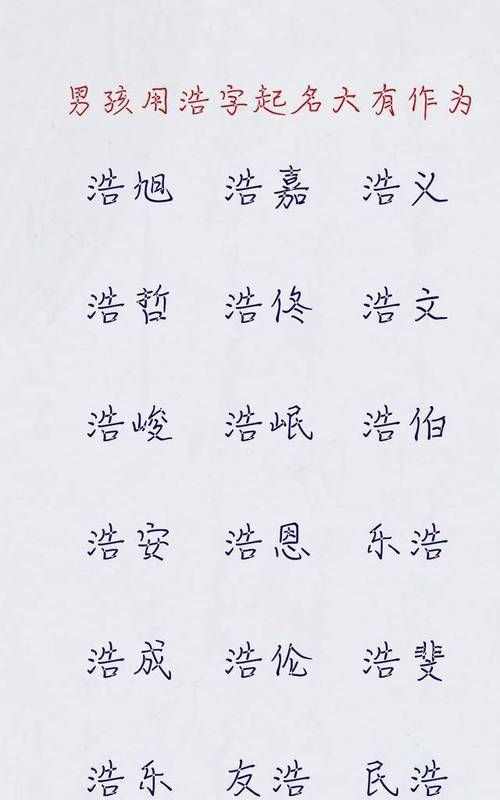 男孩用浩字起名大有作为
浩旭 浩嘉 浩义
浩哲 浩佟 浩文
浩峻 浩岷 浩伯
浩安 浩恩 乐浩
浩成 浩伦 浩斐
浩乐 友浩 民浩